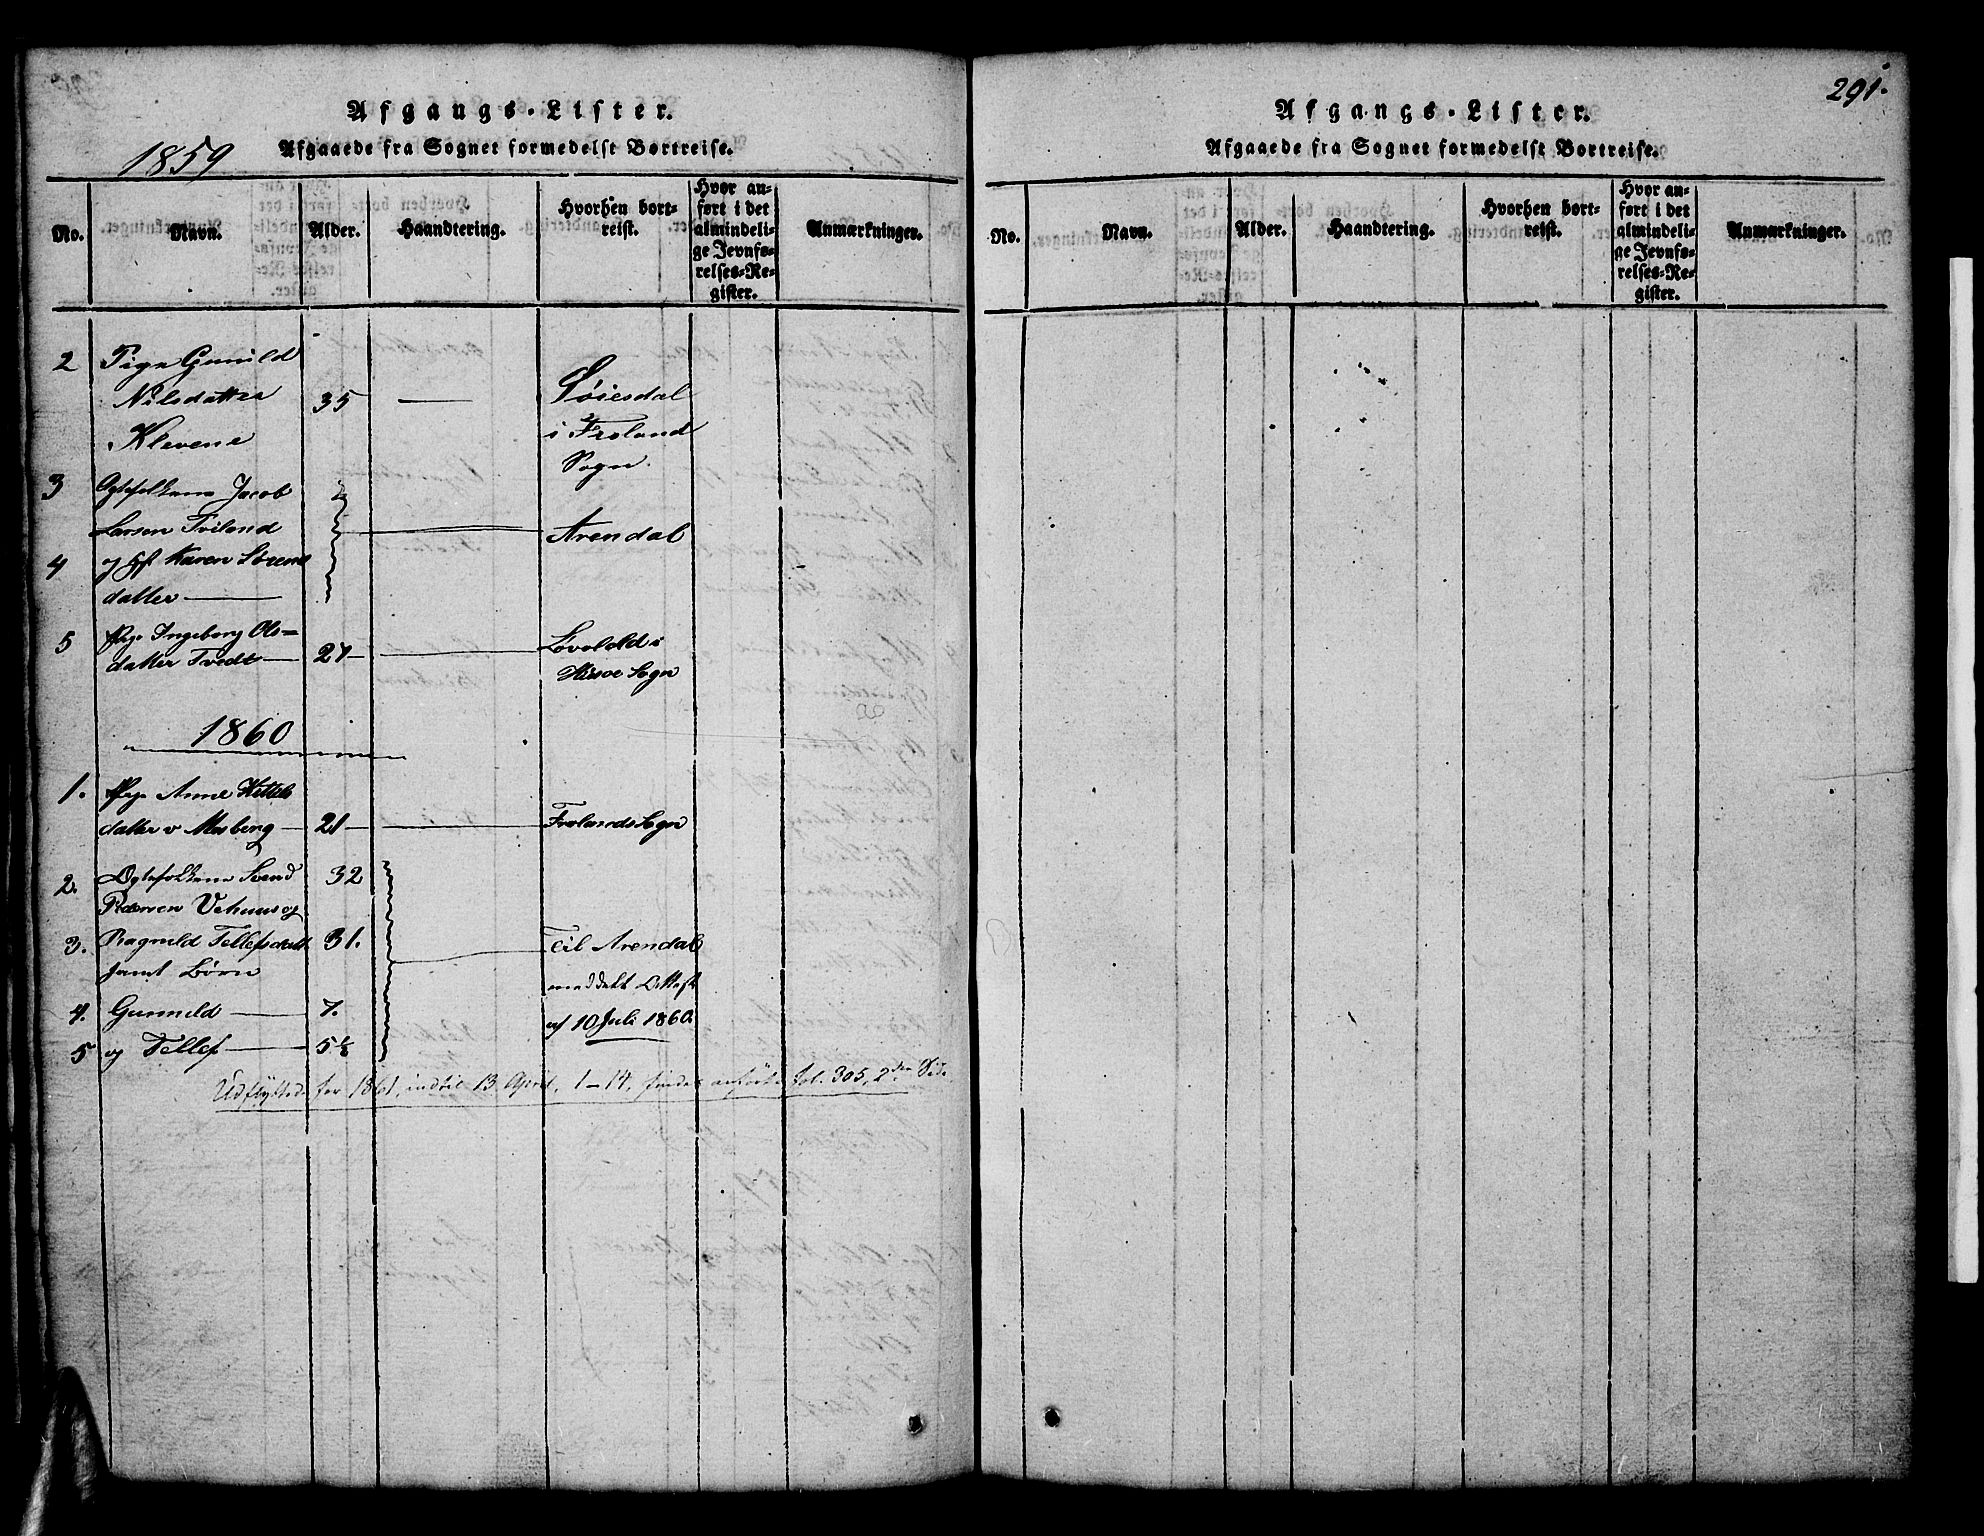 Afgangs-Lister.
1859
Afgaaede fra Sognet formedelst Bortreise.
No.
Navn.
Alder.
Haandtering.
Hvorhen bort-
reist.
Hvor an-
ført i det
almindeli-
ge Jevnfø-
relses-Re-
gister.
Anmærkninger.
2 Pige Gunild
Nilsdatter 35 —
Klevene
i Froland
Sogn.
3 Ægtefolkene Jacob
Larsen
Arendal
4 og Karen Sørens
datter —
5 Pige Ingeborg Ols=
datter Tvedt — 27 —
Sogn
1860
1. Pige Anne Kittels
datter v Mosberg — 21 — Frolands Sogn
2. Ægtefolkene Svend 32
Pedersen Vehuus og
3. Ragnild Tellefsdatt 31. Til Arendal
samt Børn
meddelt Attest
4. Gunnild — 7.
af 10 Juli 1860.
5 og Tellef — 5½
Udflyttede for 1861, indtil 13 April, 1–14, findes anførte fol. 305, 2den Side
291.
Afgangs-Lister.
Afgaaede fra Sognet formedelst Bortreise.
No.
Navn.
Alder.
Haandtering.
Hvorhen bort-
reist.
Hvor an-
ført i det
almindeli-
ge Jevnfø-
relses-Re-
gister.
Anmærkninger.